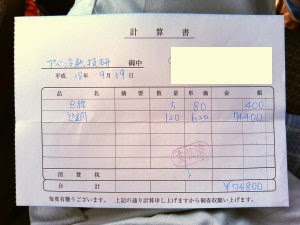 計算書
アベ冷熱技研 御中
平成 18年 9月 19日
品名 摘要 数量 単価 金額
B鉄 5 80 400
込銅 120 620 74400
消費税
合計 ¥74800
毎度有難うございます。 上記の通り計算申し上げますから御査収願い上げます。